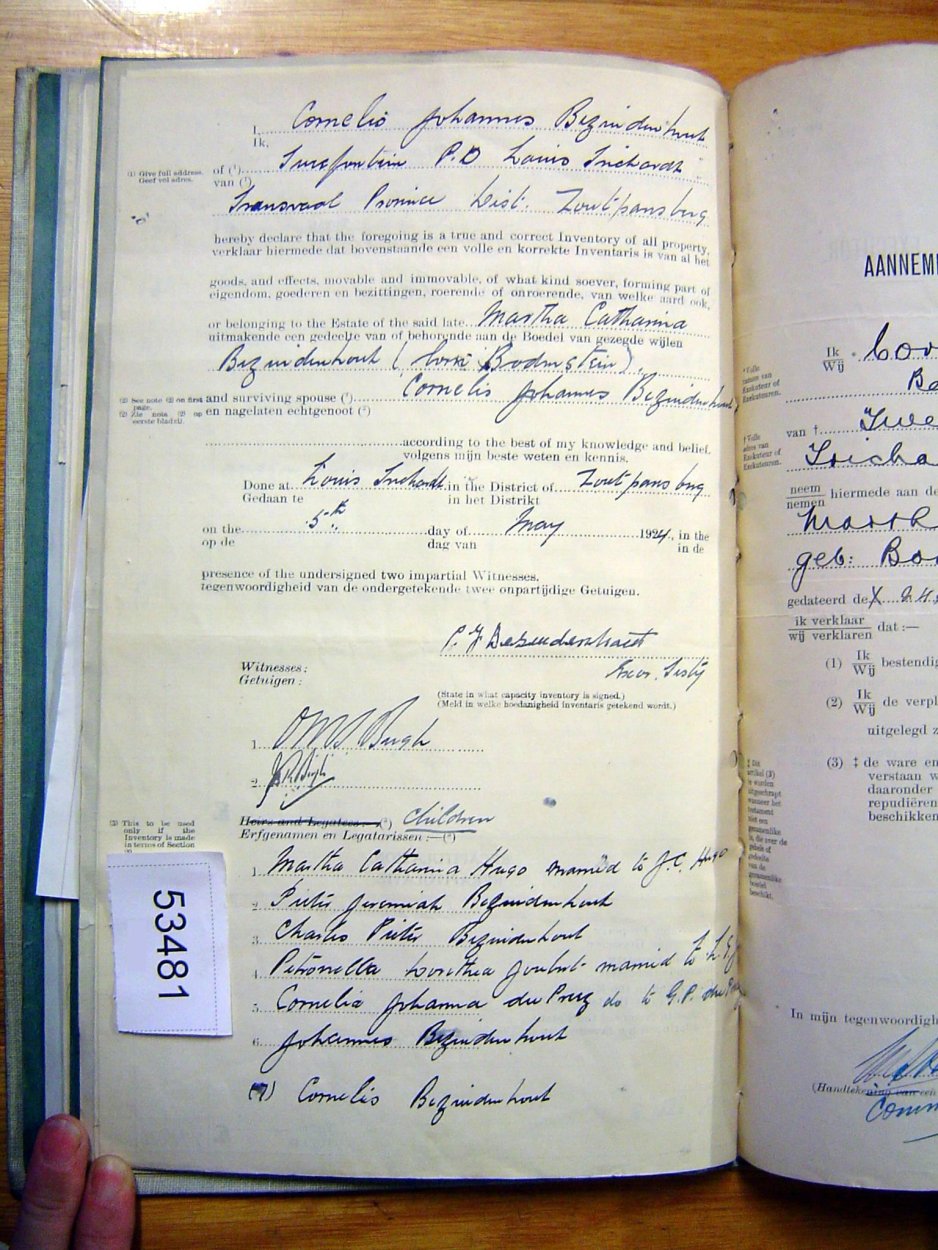 I, Cornelis Johannes Bezuidenhout
Ik,
(1) Give full address.
Geef vol adres.
of (1) P.O Louis Trichardt
van (1)
Transvaal Province Dist. Zoutpansberg
hereby declare that the foregoing is a true and correct Inventory of all property,
verklaar hiermede dat bovenstaande een volle en korrekte Inventaris is van al het
goods, and effects, movable and immovable, of what kind soever, forming part of
eigendom, goederen en bezittingen, roerende of onroerende, van welke aard ook,
or belonging to the Estate of the said late Martha Catharina
uitmakende een gedeelte van of behorende aan de Boedel van gezegde wijlen
Bezuidenhout (born Bodenstein),
(2) See note (2) on first page.
(2) Zie nota (2) op eerste bladzij.
and surviving spouse (2) Cornelis Johannes Bezuidenhout
en nagelaten echtgenoot (2)
according to the best of my knowledge and belief.
volgens mijn beste weten en kennis.
Done at Louis Trichardt in the District of Zoutpansberg
Gedaan te in het Distrikt
on the 5th day of May 1924, in the
op de dag van in de
presence of the undersigned two impartial Witnesses.
tegenwoordigheid van de ondergetekende twee onpartijdige Getuigen.
Bezuidenhout
Witnesses:
Getuigen:
(State in what capacity inventory is signed.)
(Meld in welke hoedanigheid inventaris getekend wordt.)
1.
2.
(3) This to be used
only if the
Inventory is made
in terms of Section
Heirs and Legatees:—(3) Children
Erfgenamen en Legatarissen:—(3)
1. Martha Catharina Hugo married to J.C. Hugo
2. Pieter Jeremiah Bezuidenhout
3. Charles Pieter Bezuidenhout
4. Petronella Dorothea Joubert married to
5. Cornelia Johanna du Preez do to G.P. du
6. Johannes Bezuidenhout
(7) Cornelis Bezuidenhout
53481
AANNEM
Ik
Wij
van †
neem
nemen hiermede aan de
geb: Bo
gedateerd de
ik verklaar
wij verklaren dat :—
(1) Ik
Wij bestendig
(2) Ik
Wij de verpl
uitgelegd z
(3) ‡ de ware en
verstaan w
daaronder
repudiëren
beschikken
In mijn tegenwoordigh
(Handtekening van een
Comm